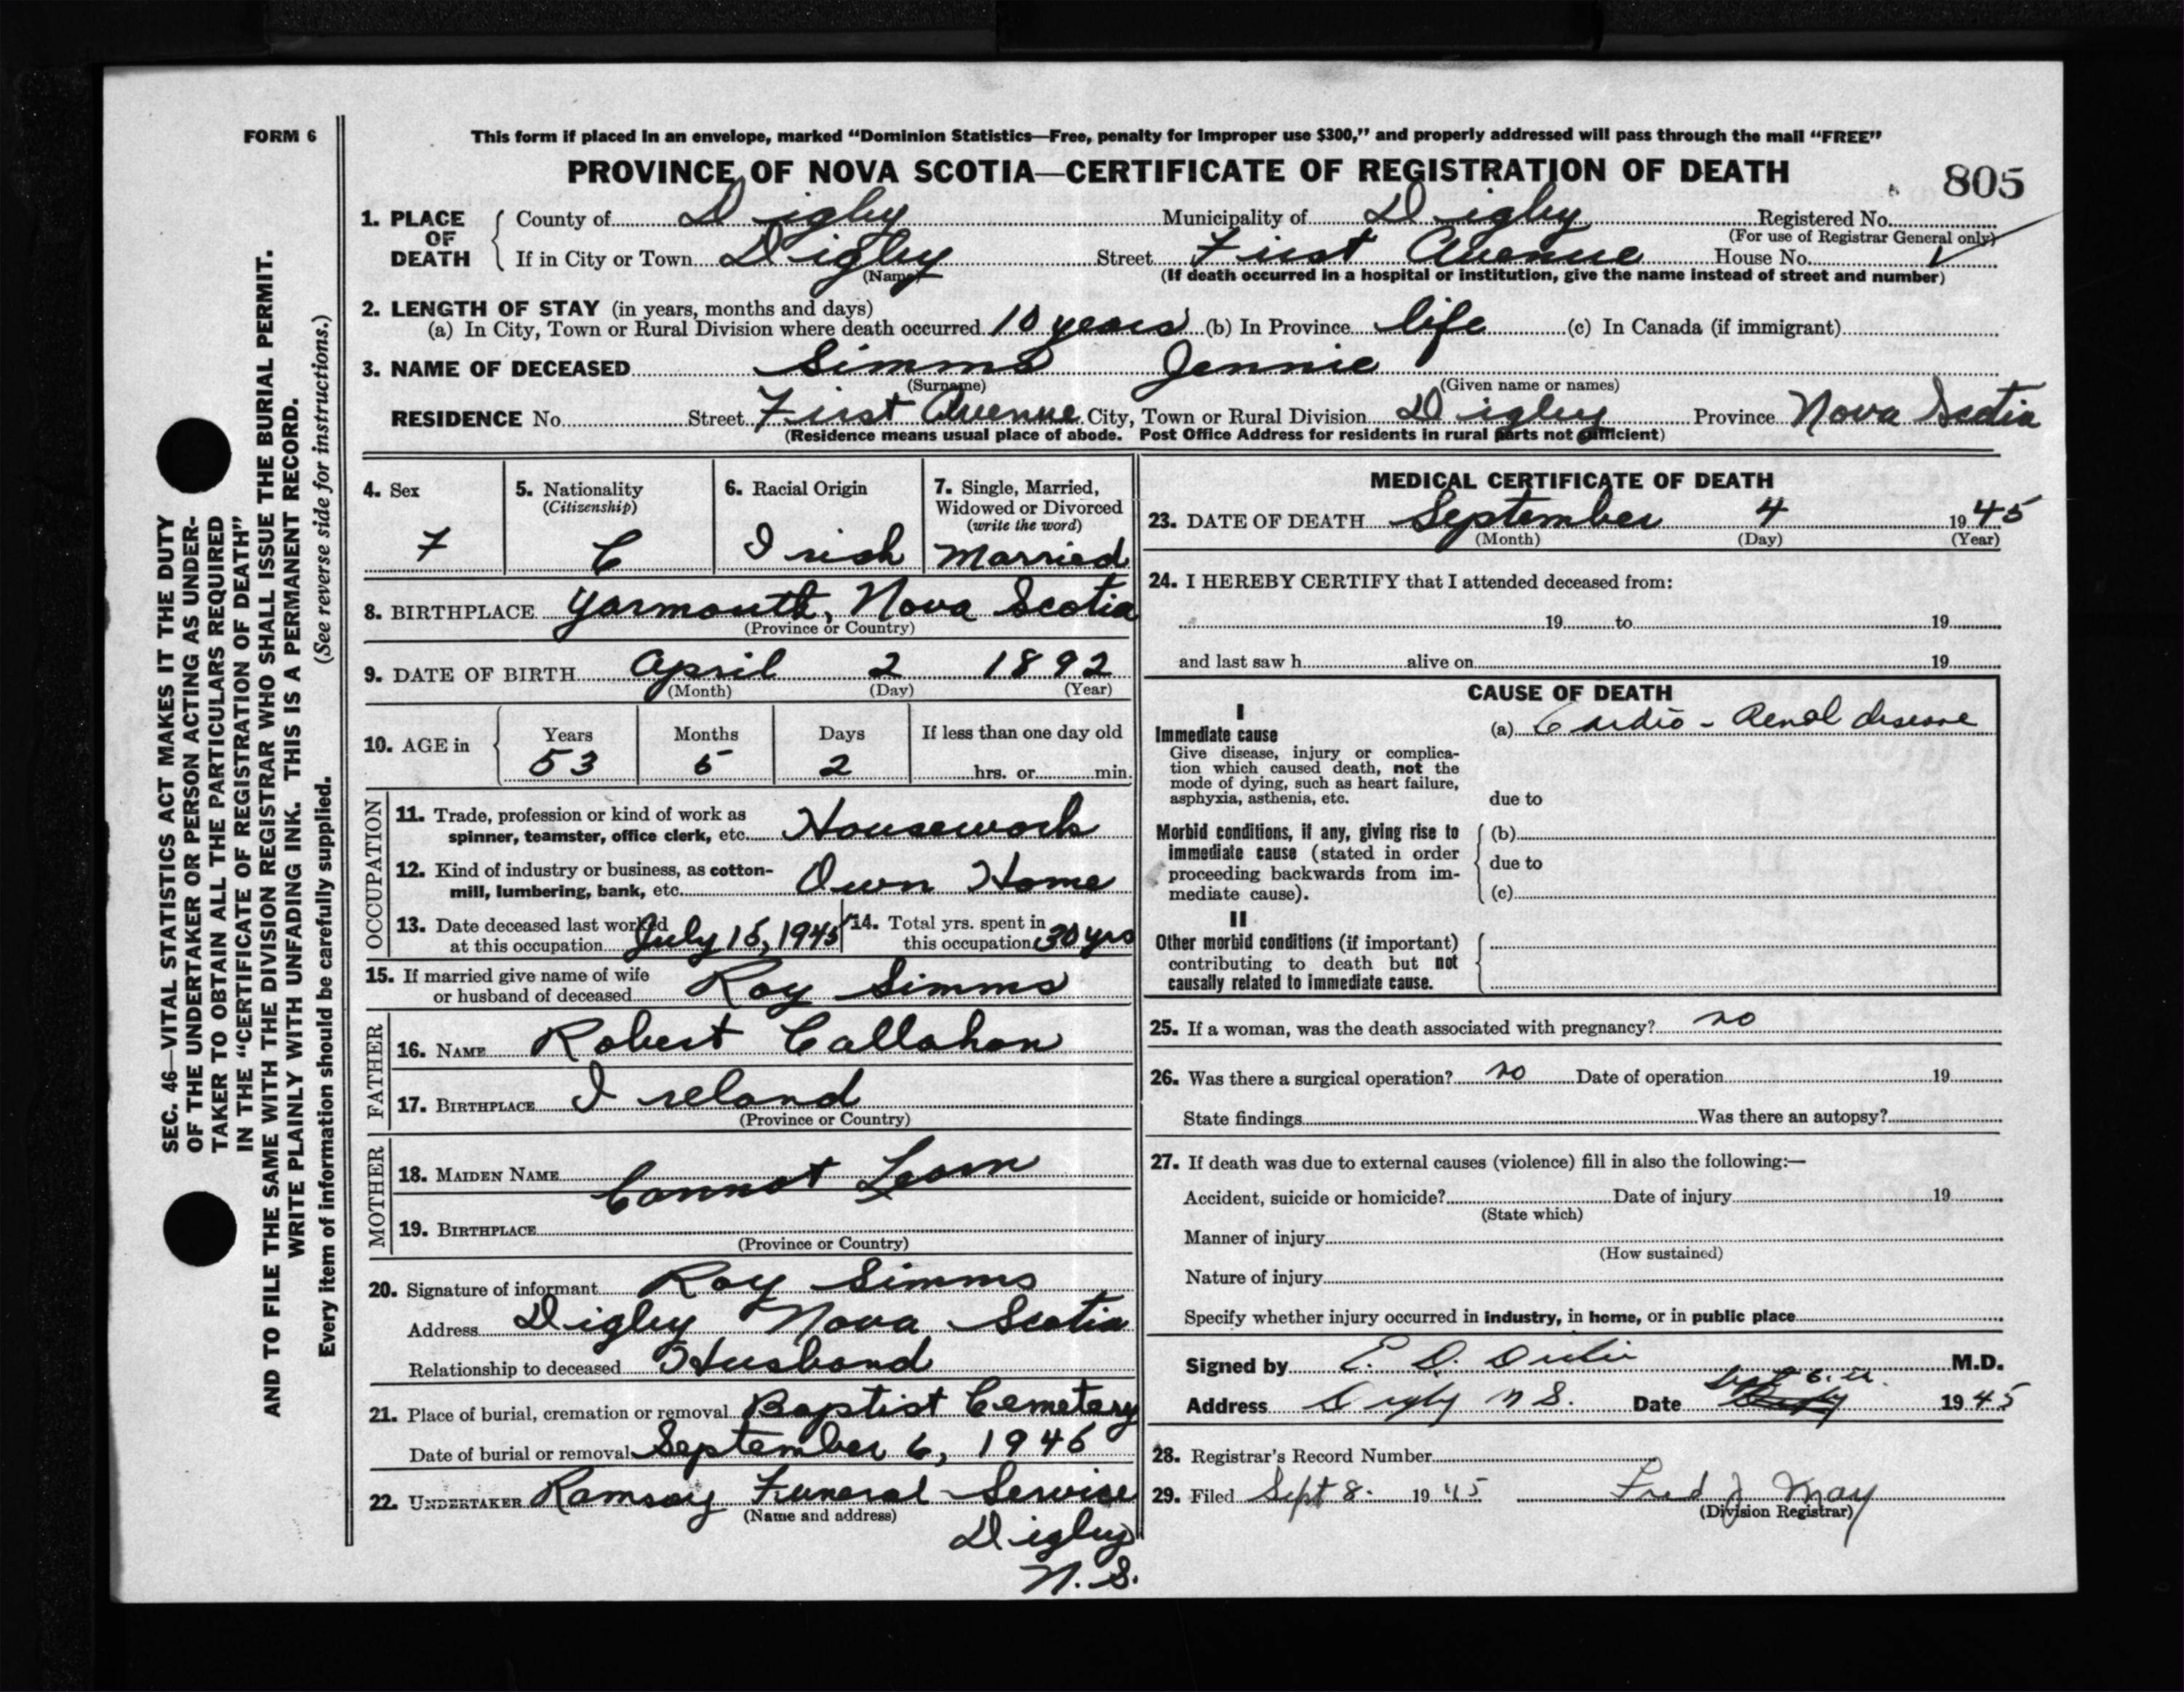 FORM 6
This form if placed in an envelope, marked “Dominion Statistics—Free, penalty for improper use $300,” and properly addressed will pass through the mail “FREE”
PROVINCE OF NOVA SCOTIA—CERTIFICATE OF REGISTRATION OF DEATH
805
1. PLACE OF DEATH
County of Digby Municipality of Digby Registered No.
(For use of Registrar General only)
If in City or Town Digby Street First Avenue House No.
(Name)
(If death occurred in a hospital or institution, give the name instead of street and number)
2. LENGTH OF STAY (in years, months and days)
(a) In City, Town or Rural Division where death occurred 10 years (b) In Province life (c) In Canada (if immigrant)
3. NAME OF DECEASED Simms Jennie
(Surname) (Given name or names)
RESIDENCE No. Street First Avenue City, Town or Rural Division Digby Province Nova Scotia
(Residence means usual place of abode. Post Office Address for residents in rural parts not sufficient)
SEC. 46—VITAL STATISTICS ACT MAKES IT THE DUTY
OF THE UNDERTAKER OR PERSON ACTING AS UNDER-
TAKER TO OBTAIN ALL THE PARTICULARS REQUIRED
IN THE “CERTIFICATE OF REGISTRATION OF DEATH”
AND TO FILE THE SAME WITH THE DIVISION REGISTRAR WHO SHALL ISSUE THE BURIAL PERMIT.
WRITE PLAINLY WITH UNFADING INK. THIS IS A PERMANENT RECORD.
Every item of information should be carefully supplied. (See reverse side for instructions.)
4. Sex
F
5. Nationality
(Citizenship)
C
6. Racial Origin
Irish
7. Single, Married,
Widowed or Divorced
(write the word)
Married
8. BIRTHPLACE Yarmouth, Nova Scotia
(Province or Country)
9. DATE OF BIRTH April 2 1892
(Month) (Day) (Year)
10. AGE in
Years Months Days If less than one day old
53 5 2 hrs. or min.
OCCUPATION
11. Trade, profession or kind of work as
spinner, teamster, office clerk, etc. Housework
12. Kind of industry or business, as cotton-
mill, lumbering, bank, etc. Own Home
13. Date deceased last worked
at this occupation July 15, 1945
14. Total yrs. spent in
this occupation 30 yrs
15. If married give name of wife
or husband of deceased Roy Simms
FATHER
16. NAME Robert Callahan
17. BIRTHPLACE Ireland
(Province or Country)
MOTHER
18. MAIDEN NAME Cannot Learn
19. BIRTHPLACE
(Province or Country)
20. Signature of informant Roy Simms
Address Digby Nova Scotia
Relationship to deceased Husband
21. Place of burial, cremation or removal Baptist Cemetery
Date of burial or removal September 6, 1945
22. UNDERTAKER Ramsay Funeral Service
(Name and address)
Digby
N. S.
MEDICAL CERTIFICATE OF DEATH
23. DATE OF DEATH September 4 1945
(Month) (Day) (Year)
24. I HEREBY CERTIFY that I attended deceased from:
19 to 19
and last saw h alive on 19
CAUSE OF DEATH
I
Immediate cause
Give disease, injury or complica-
tion which caused death, not the
mode of dying, such as heart failure,
asphyxia, asthenia, etc.
(a) Cardio - Renal disease
due to
Morbid conditions, if any, giving rise to
immediate cause (stated in order
proceeding backwards from im-
mediate cause).
(b)
due to
(c)
II
Other morbid conditions (if important)
contributing to death but not
causally related to immediate cause.
25. If a woman, was the death associated with pregnancy? no
26. Was there a surgical operation? no Date of operation 19
State findings Was there an autopsy?
27. If death was due to external causes (violence) fill in also the following:—
Accident, suicide or homicide? Date of injury 19
(State which)
Manner of injury
(How sustained)
Nature of injury
Specify whether injury occurred in industry, in home, or in public place
Signed by E. D. M.D.
Address Digby N S. Date Sept 6 1945
28. Registrar’s Record Number
29. Filed Sept 8. 1945 Fred J May
(Division Registrar)